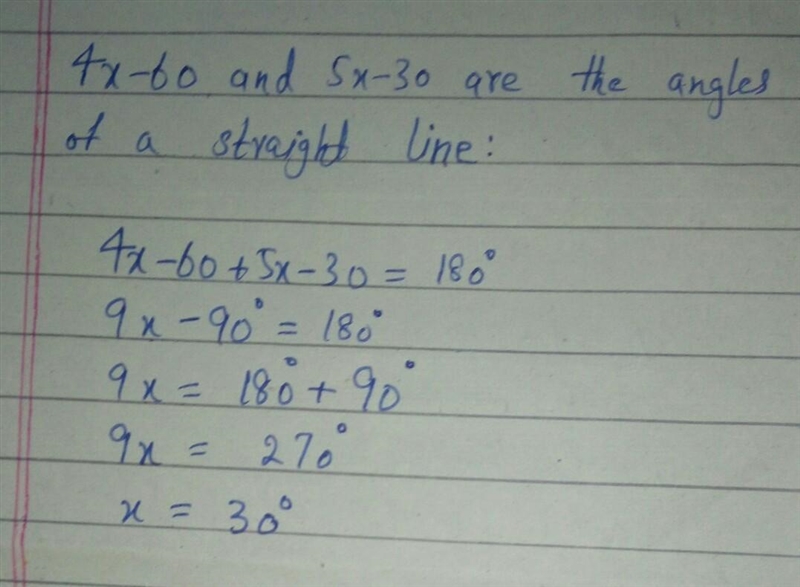 4x-60 and 5x-30 are the angles
of a straight line:
4x-60+5x-30 = 180°
9x - 90° = 180°
9x = 180° + 90°
9x = 270°
x = 30°